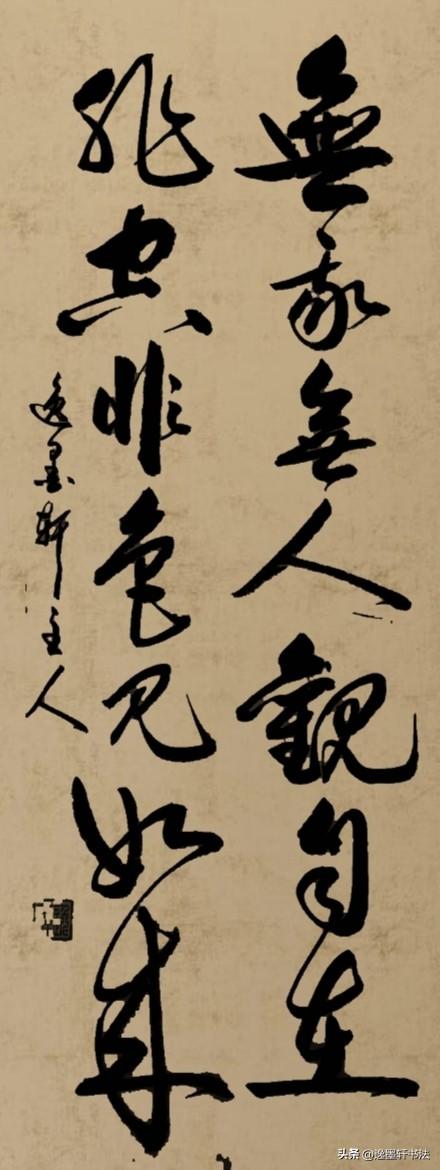 無我無人觀自在
非空非色見如來
逸墨軒主人
头条 @逸墨轩书法